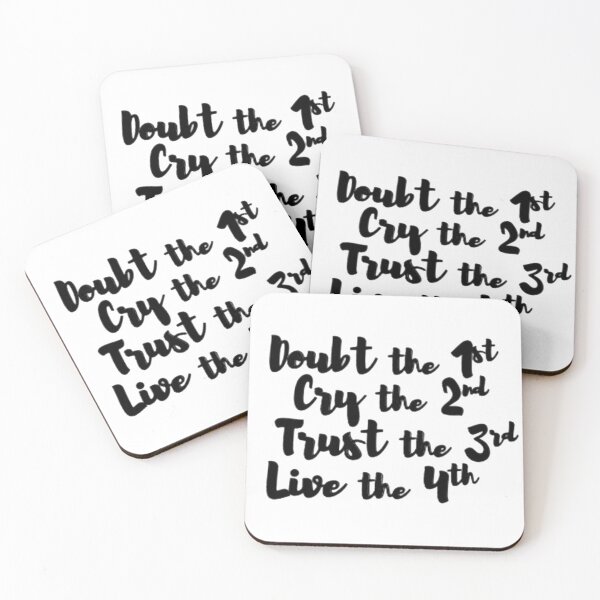 Doubt the 1st
Cry the 2nd
the
Doubt the 1st
Cry the 2nd
Trust the 3rd
Live the 4th
Doubt the 1st
Cry the 2nd
Trust the 3rd
Live the
Doubt the 1st
Cry the 2nd
Trust the 3rd
Live the 4th